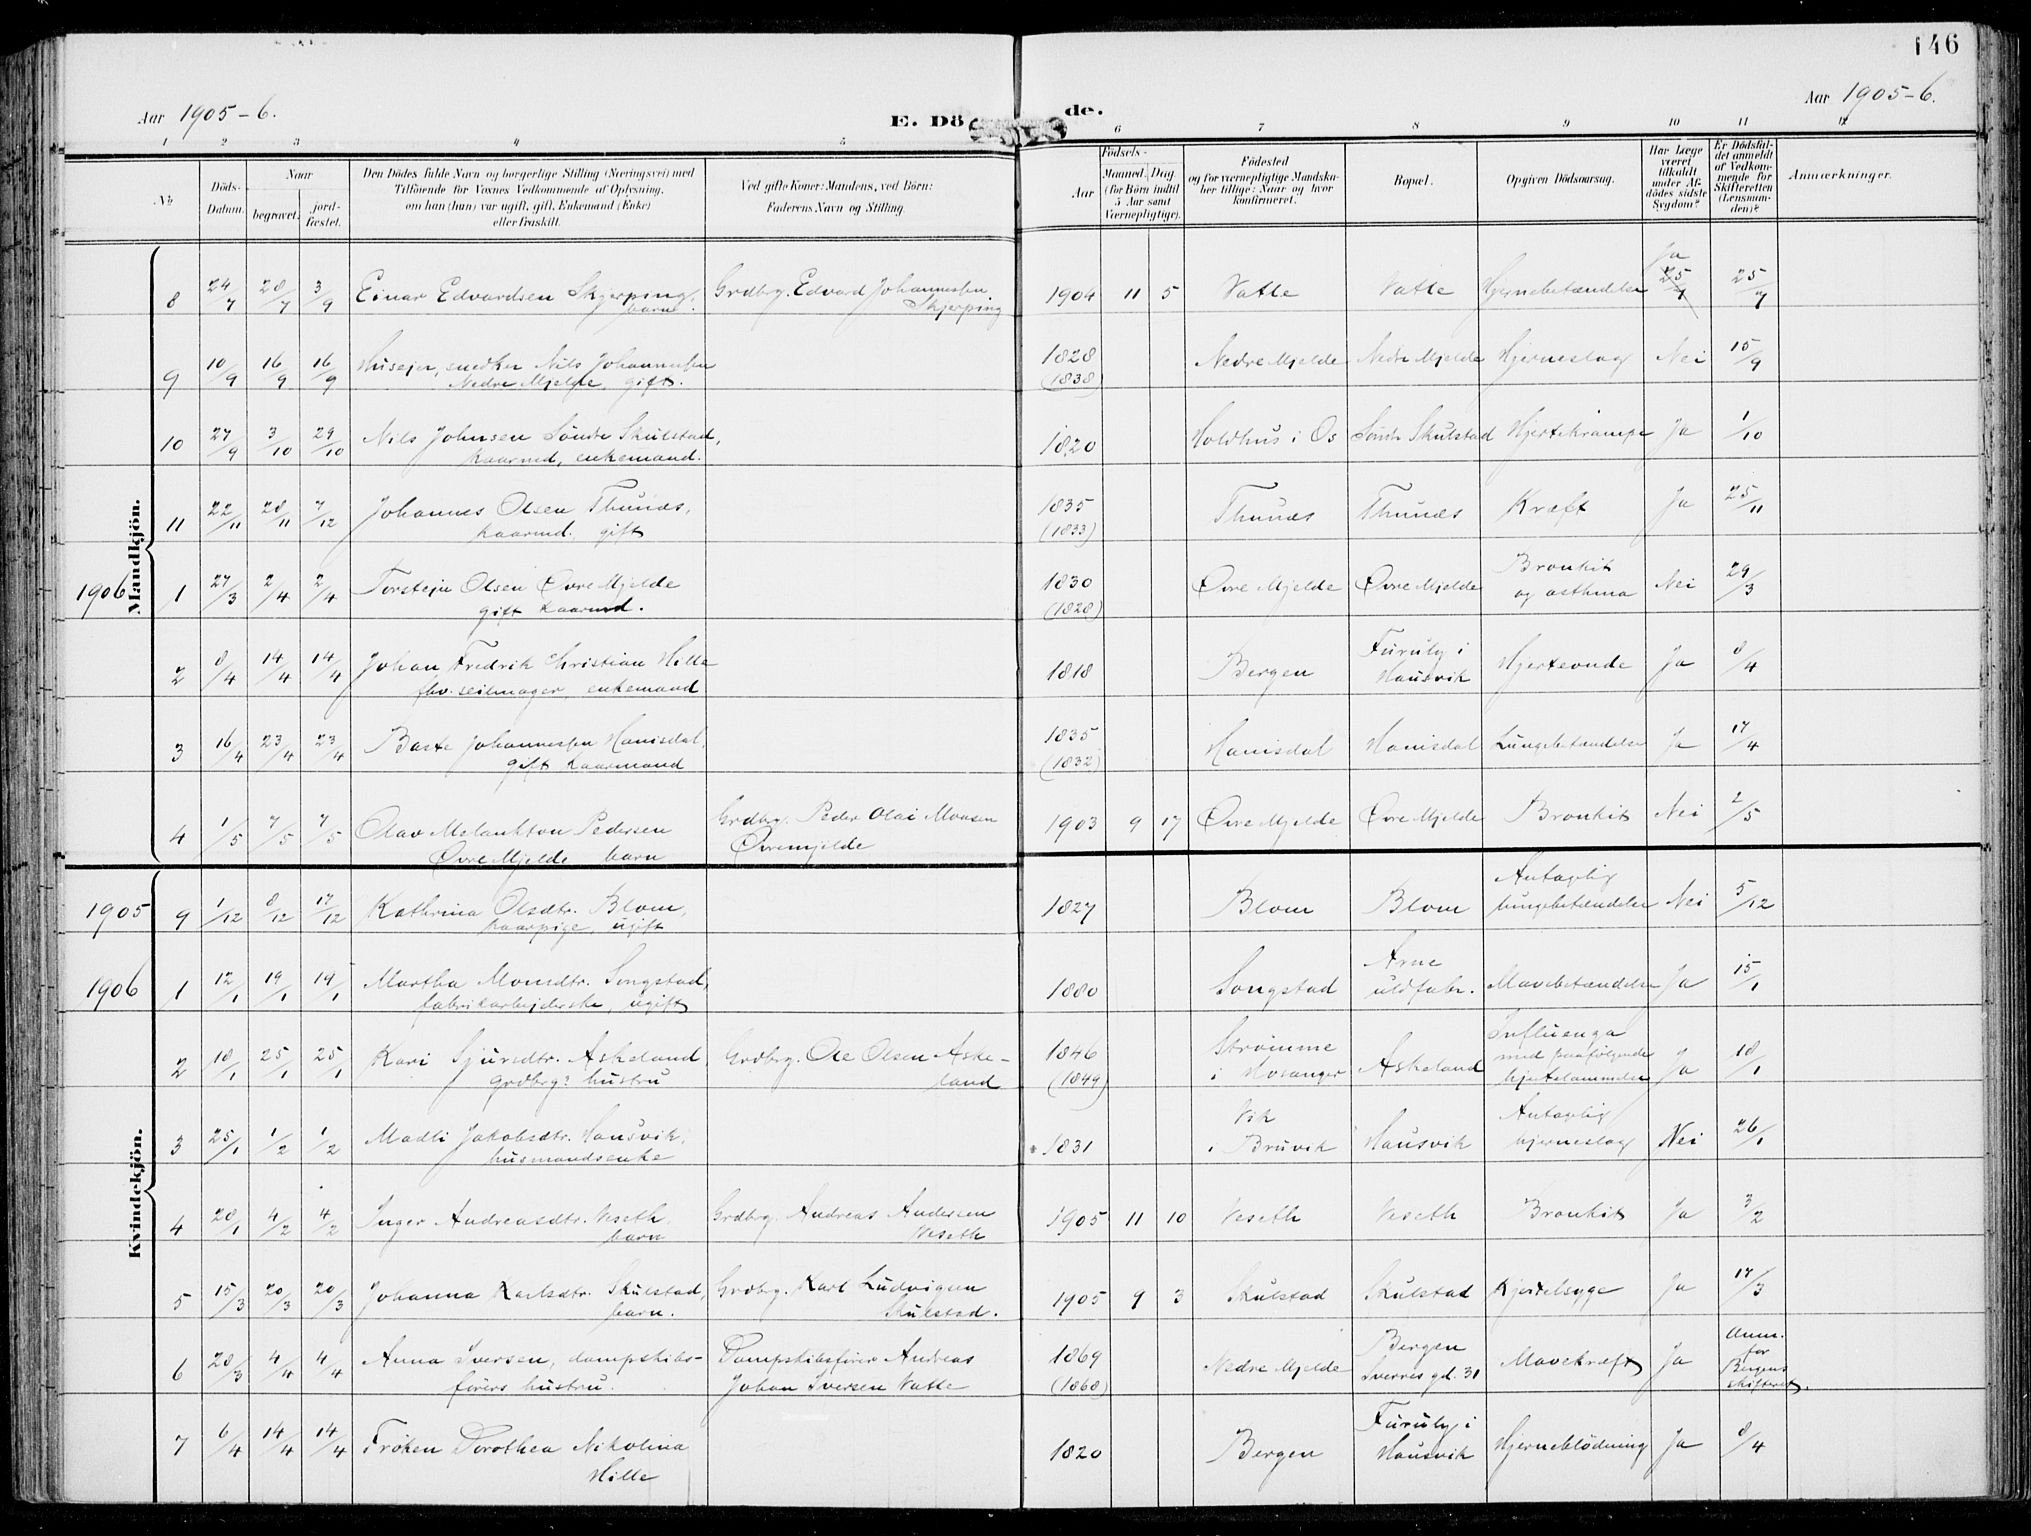 146
Aar 1905-6.
E. Dö de.
Aar 1905-6.
1 2 3 4 5 6 7 8 9 10 11 12
No
Döds-Datum.
Naar
begravet.
jord-fæstet.
Den Dödes fulde Navn og borgerlige Stilling (Næringsvei) med
Tilföiende for Voxnes Vedkommende af Oplysning,
om han (hun) var ugift, gift, Enkemand (Enke)
eller fraskilt.
Ved gifte Koner: Mandens, ved Börn:
Faderens Navn og Stilling.
Födsels-
Aar
Maaned, Dag
(for Börn indtil
5 Aar samt
Værnepligtige).
Födested
og for værnepligtige Mandska-
ber tillige: Naar og hvor
konfirmeret.
Bopæl.
Opgiven Dödsaarsag.
Har Læge
været
tilkaldt
under Af-
dödes sidste
Sygdom?
Er Dödsfal-
det anmeldt
af Vedkom-
mende for
Skifteretten
(Lensman-
den)?
Anmærkninger.
Mandkjön.
8 24/7 28/7 3/9 Einar Edvardsen Skjerping, Grdbrg. Edvard Johannessen 1904 11 5 Vatle Vatle Hjernebetændelse Ja 25/7 25/7
barn. Skjerping
9 10/9 16/9 16/9 Husejer, snedker Nils Johannessen 1828 Nedre Mjelde Nedre Mjelde Hjerneslag Nei 15/9
Nedre Mjelde, gift. (1838)
10 27/9 3/10 29/10 Nils Johnsen Söndre Skulstad, 1820 Holdhus i Os Söndre Skulstad Hjertekrampe Ja 1/10
kaarmd, enkemand.
11 22/11 28/11 7/12 Johannes Olsen Thunæs, 1835 Thunæs Thunæs Kræft Ja 25/11
kaarmd. gift (1833)
1906 1 27/3 2/4 2/4 Torstejn Olsen Øvre Mjelde 1830 Øvre Mjelde Øvre Mjelde Bronkit og asthma Nei 29/3
gift kaarmd. (1828)
2 8/4 14/4 14/4 Johan Fredrik Christian Hille 1818 Bergen Furuly i Hausvik Hjerteonde Ja 8/4
fhv. seilmager, enkemand
3 16/4 23/4 23/4 Baste Johannessen Hanisdal, 1835 Hanisdal Hanisdal Lungebetændelse Ja 17/4
gift kaarmand (1832)
4 1/5 7/5 7/5 Olav Melankton Pedersen Grdbrg. Peder Olai Monsen 1903 9 17 Øvre Mjelde Øvre Mjelde Bronkit Nei 2/5
Øvre Mjelde barn Øvremjelde
Kvindekjön.
1905 9 1/12 8/12 17/12 Kathrina Olsdtr. Blom, 1827 Blom Blom Antagelig lungebetændelse Nei 5/12
kaarpige, ugift
1906 1 12/1 19/1 19/1 Martha Monsdtr. Songstad, 1880 Songstad Arne uldfabr. Mavebetændelse Ja 15/1
fabrikarbejderske, ugift
2 18/1 25/1 25/1 Kari Sjursdtr. Askeland, Grdbrg. Ole Olsen Aske- 1846 Strømme i Hosanger Askeland Influenza med paafølgende hjertelammelse Ja 18/1
grdbrgs hustru land (1849)
3 25/1 1/2 1/2 Madli Jakobsdtr. Hausvik, 1831 Vik i Bruvik Hausvik Antagelig hjerneslag Nei 26/1
husmandsenke
4 28/1 4/2 4/2 Inger Andreasdtr. Veseth, Grdbrg. Andreas Andersen 1905 11 10 Veseth Veseth Bronkit Ja 3/2
barn Veseth
5 15/3 20/3 20/3 Johanna Karlsdtr. Skulstad, Grdbrg. Karl Ludvigsen 1905 9 3 Skulstad Skulstad Kjertelsyge Ja 17/3
barn. Skulstad.
6 28/3 4/4 4/4 Anna Iversen, dampskibs- Dampskibsfører Andreas 1869 Nedre Mjelde Bergen Sverres gd. 31 Mavekræft Ja Anm. for Bergens skifteret.
førers hustru. Johan Iversen Vatle (1868)
7 6/4 14/4 14/4 Frøken Dorothea Nikolina 1820 Bergen Furuly i Hausvik Hjerneblödning Ja 8/4
Hille